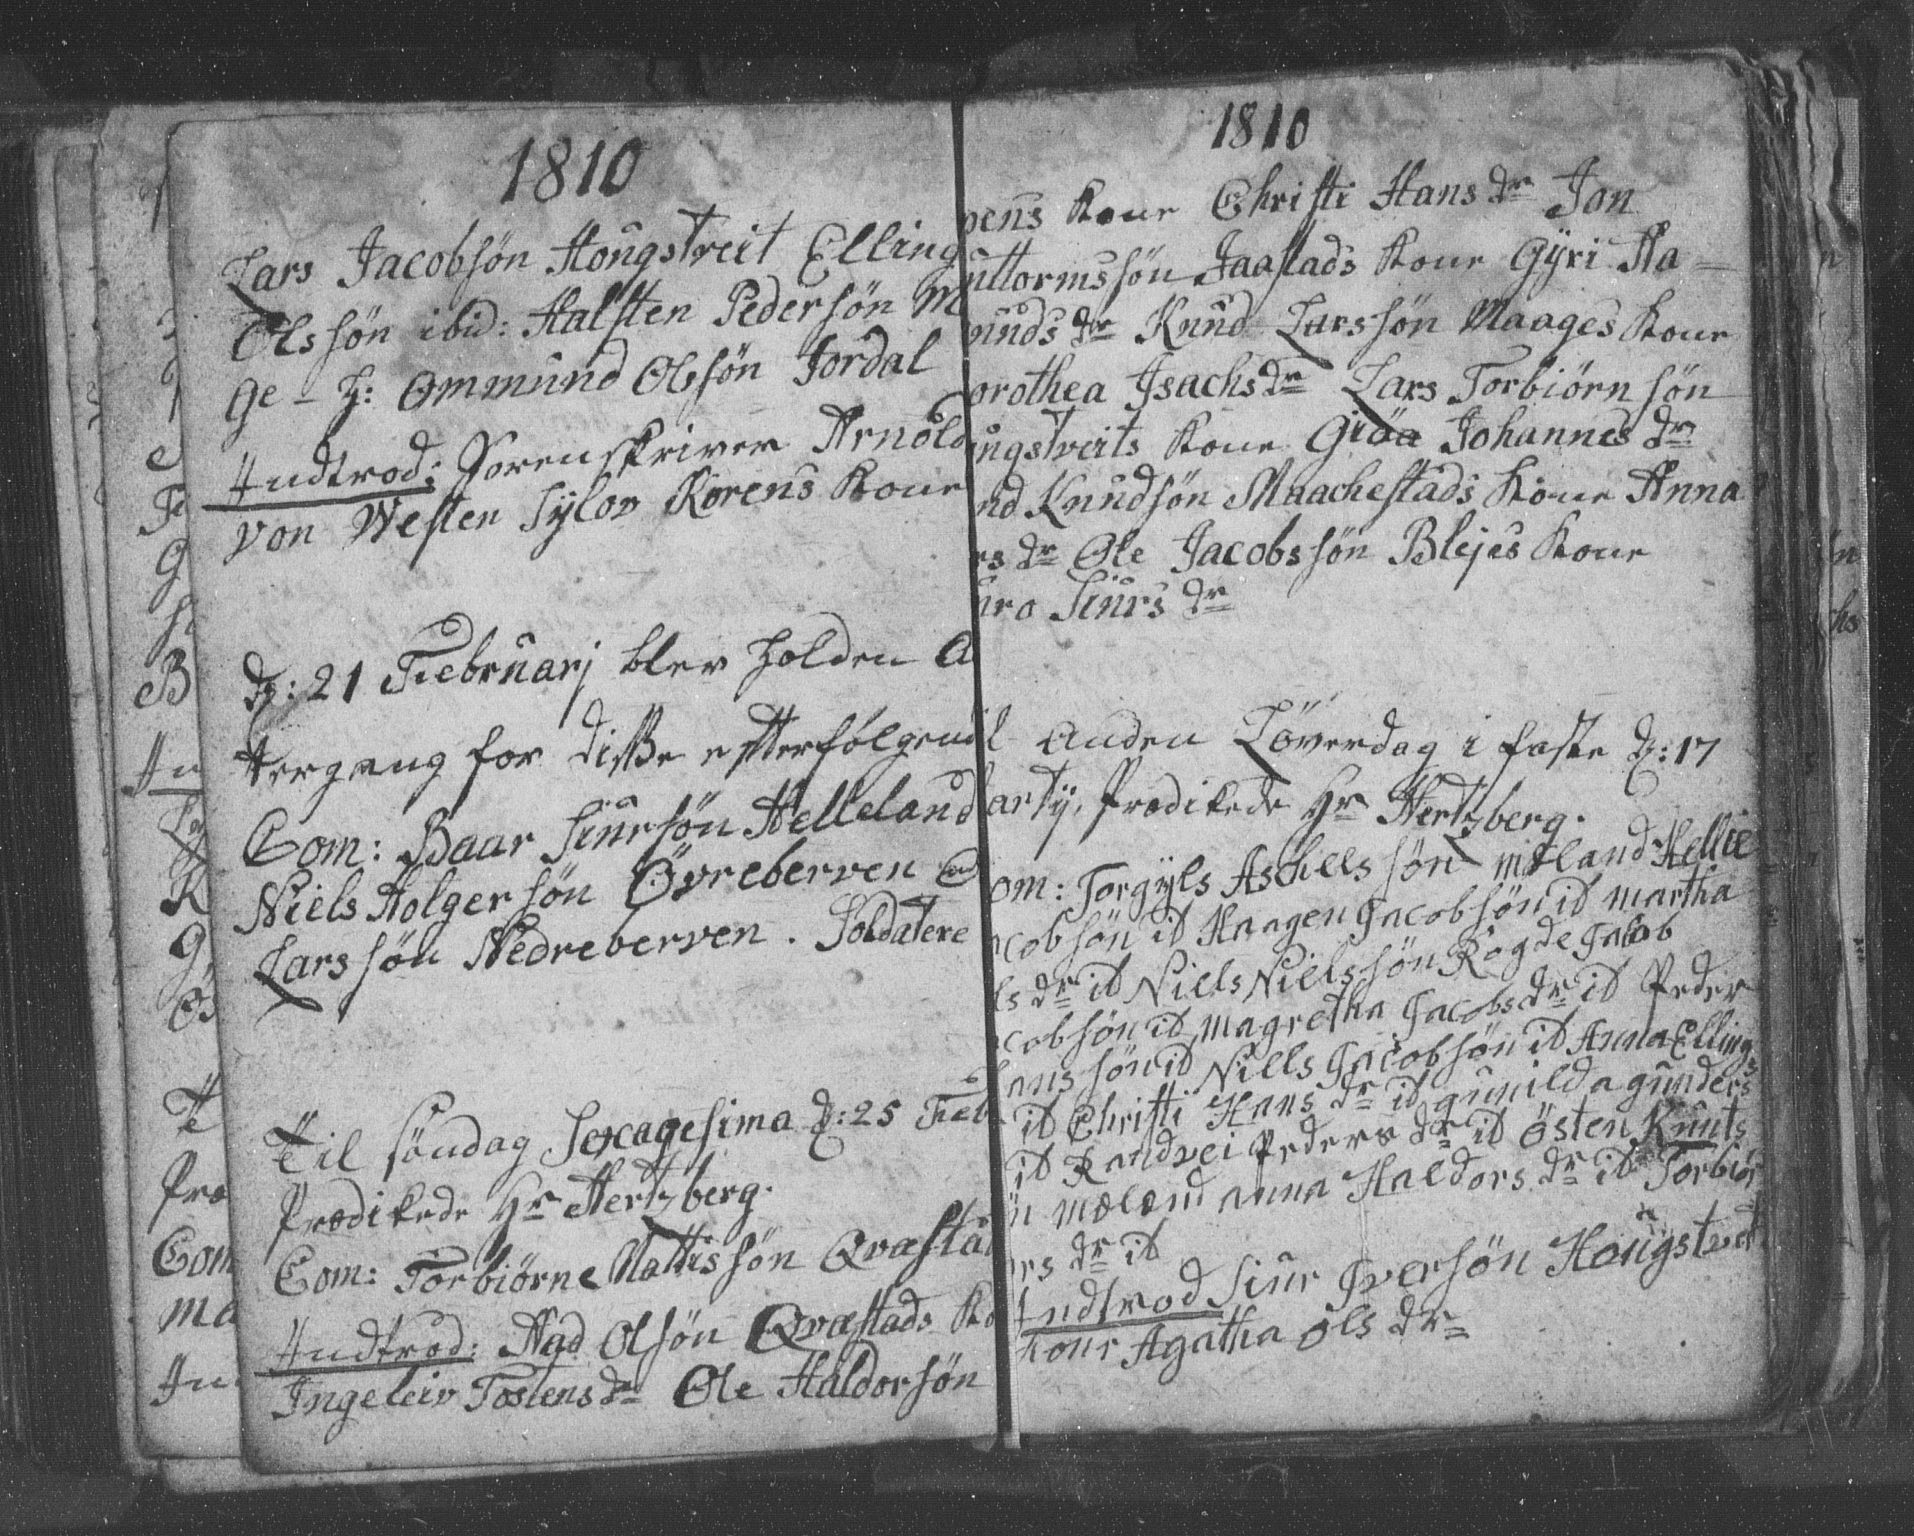 1810
Lars Jacobsön Hougstveit Elling
Olssön ibid: Halsten Pedersön M
ge - H: Ommund Olsön Jordal
Indtrod: Sorenskriver Arnold
von Westen Sylov Korens Kone
D: 21 Februarj blev holden A
tergang for disse efterfölgend
Com: Baar Siursön Helleland
Niels Holgersön Övreberven
Larssön Nedreberven. Soldatere
Til söndag Sexagesima D: 25 Feb
Prædikede Hr Hertzberg.
Com: Torbiörne Mattissön Qvæstad
Indtrod: Aad Olsön Qvæstads Ko
Ingeleiv Tostens dr Ole Haldorsön
1810
pens Kone Christi Hans dr Jon
uttormssön Jaastads Kone Gÿri Aa-
munds dr Knud Larssön Maages Kone
orothea Isachs dr Lars Torbiörnsön
ungstveits Kone Giöa Johannes dr
nd Knudsön Maachestads Kone Anna
rs dr Ole Jacobssön Blejes Kone
uro Siurs dr
l Anden Löverdag i faste D: 17
Marty, Prædikede Hr Hertzberg.
om: Torgÿls Aschelssön mæland Hellie
acobsön it Haagen Jacobsön it martha
ls dr it Niels Nielssön Rogde Jakob
acobsön it magretha Jacobs dr it Peder
ans sön it Niels Jacobsön it Anna Ellings
it Christi Hans dr it gunilda gunders
it Randvei Peders dr it Östen Knuts
n mæland anna Haldors dr it Torbiör
rs dr it
Indtrod Siur Iversön Hougstvet
Kone Agatha Ols dr